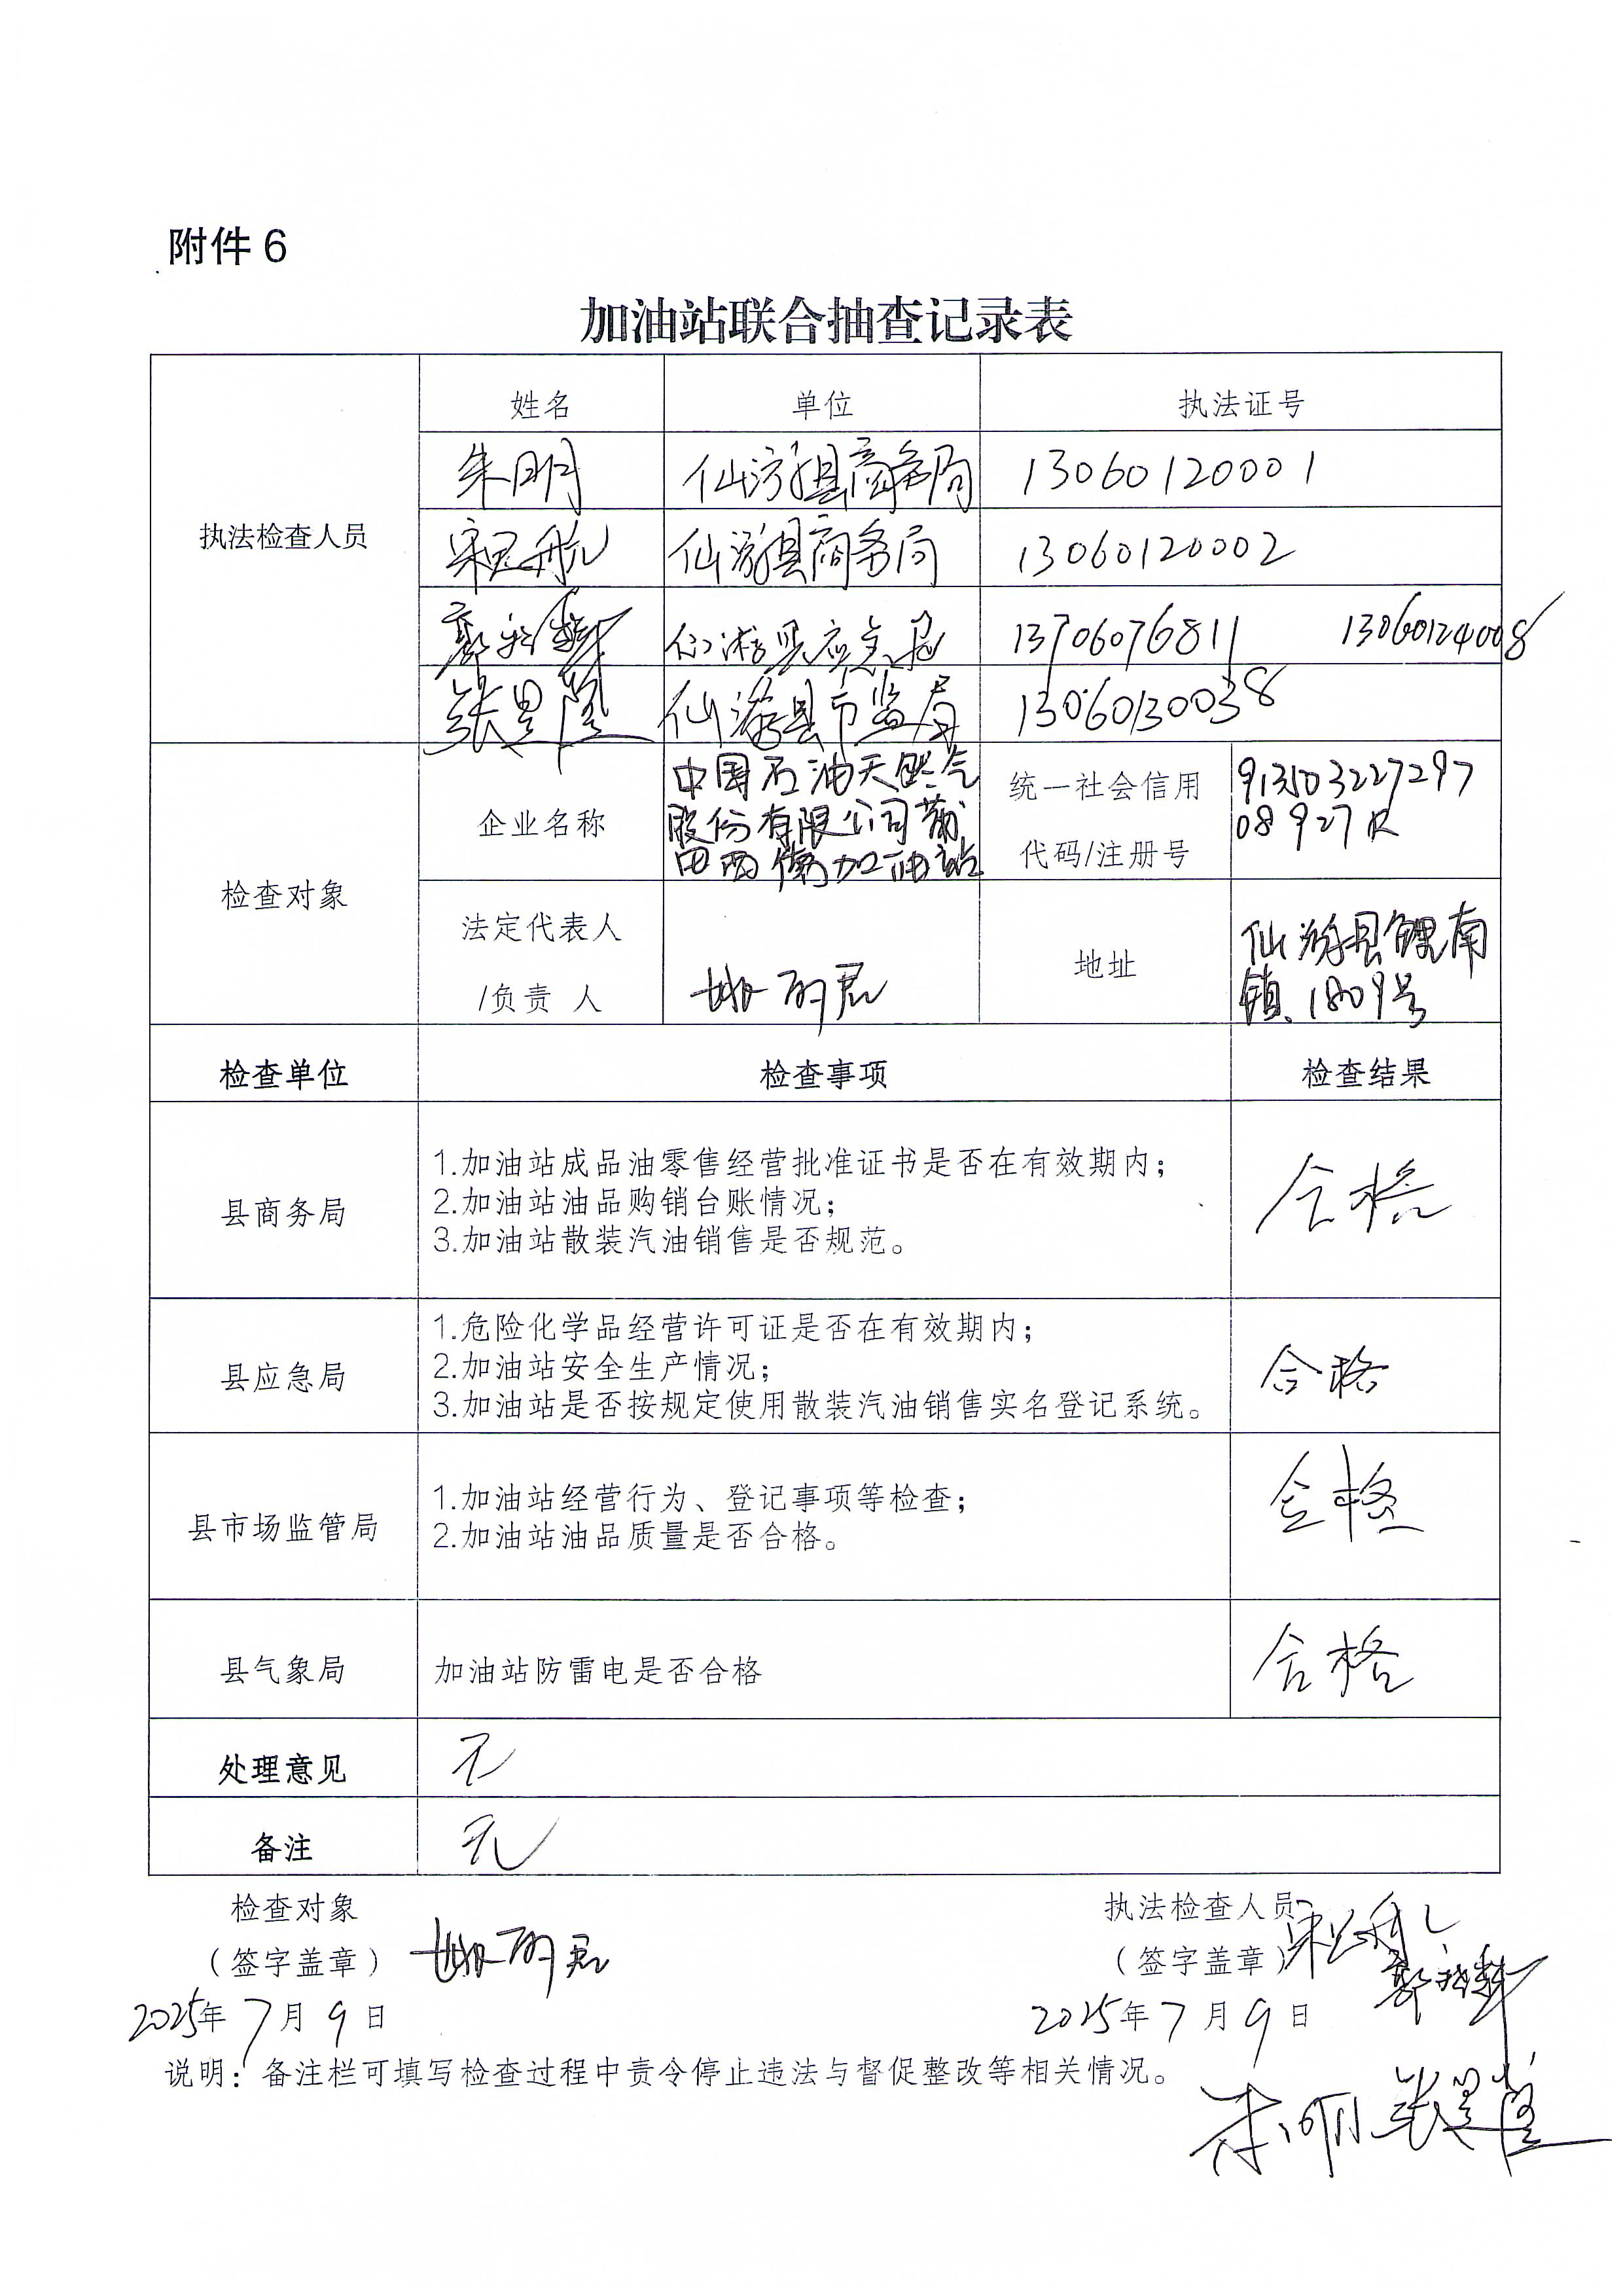 附件6
加油站联合抽查记录表
执法检查人员
姓名 单位 执法证号
朱明 仙游县商务局 13060120001
宋思航 仙游县商务局 13060120002
仙游县应急局 13706076811 13060124008
张 仙游县市监局 13060130038
检查对象
企业名称
中国石油天然气
股份有限公司莆
田西儒加油站
统一社会信用
代码/注册号
913503227297
08927R
法定代表人
/负责 人
地址
仙游县鲤南
镇1809号
检查单位 检查事项 检查结果
县商务局
1.加油站成品油零售经营批准证书是否在有效期内；
2.加油站油品购销台账情况；
3.加油站散装汽油销售是否规范。
合格
县应急局
1.危险化学品经营许可证是否在有效期内；
2.加油站安全生产情况；
3.加油站是否按规定使用散装汽油销售实名登记系统。
合格
县市场监管局
1.加油站经营行为、登记事项等检查；
2.加油站油品质量是否合格。
合格
县气象局 加油站防雷电是否合格 合格
处理意见 无
备注 无
检查对象
（签字盖章）
2025年7月9日
执法检查人员 宋思航
（签字盖章）
2025年7月9日
说明：备注栏可填写检查过程中责令停止违法与督促整改等相关情况。
朱明 张